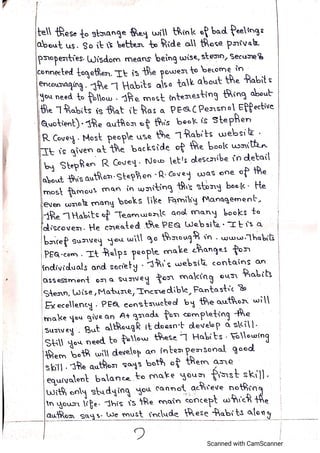 tell these to strange they will think of bad feelings
about us. So it is better to hide all those private
properties. Wisdom means being wise, stern, secure &
connected together. It is the power to become in
encouraging. The 7 Habits also talk about the habits
you need to follow. The most interesting thing about
the 7 Habits is that it has a PEQ (Personal Effective
Quotient). The author of this book is Stephen
R Covey. Most people use the 7 habits website.
It is given at the backside of the book written
by Stephen R Covey. Now let's describe in detail
about this author. Stephen. R. Covey was one of the
most famous man in writing this story book. He
even wrote many books like Family Management,
The 7 Habits of Teamwork and many books to
discover. He created the PEQ Website. It is a
brief survey you will go through in. www.7habits
PEQ.com. It helps people make changes for
individuals and society. This website contains an
assessment or a survey for making our habits
Stern, Wise, Mature, Incredible, Fantastic &
Excellency. PEQ constructed by the author will
make you give an A+ grade for completing the
survey. But although it doesn't develop a skill.
Still you need to follow these 7 Habits. Following
them both will develop an interpersonal good
skill. The author says both of them are
equivalent balance to make your first skill.
With only studying you cannot achieve nothing
in your life. This is the main concept which the
author says. We must include these habits along
Scanned with CamScanner